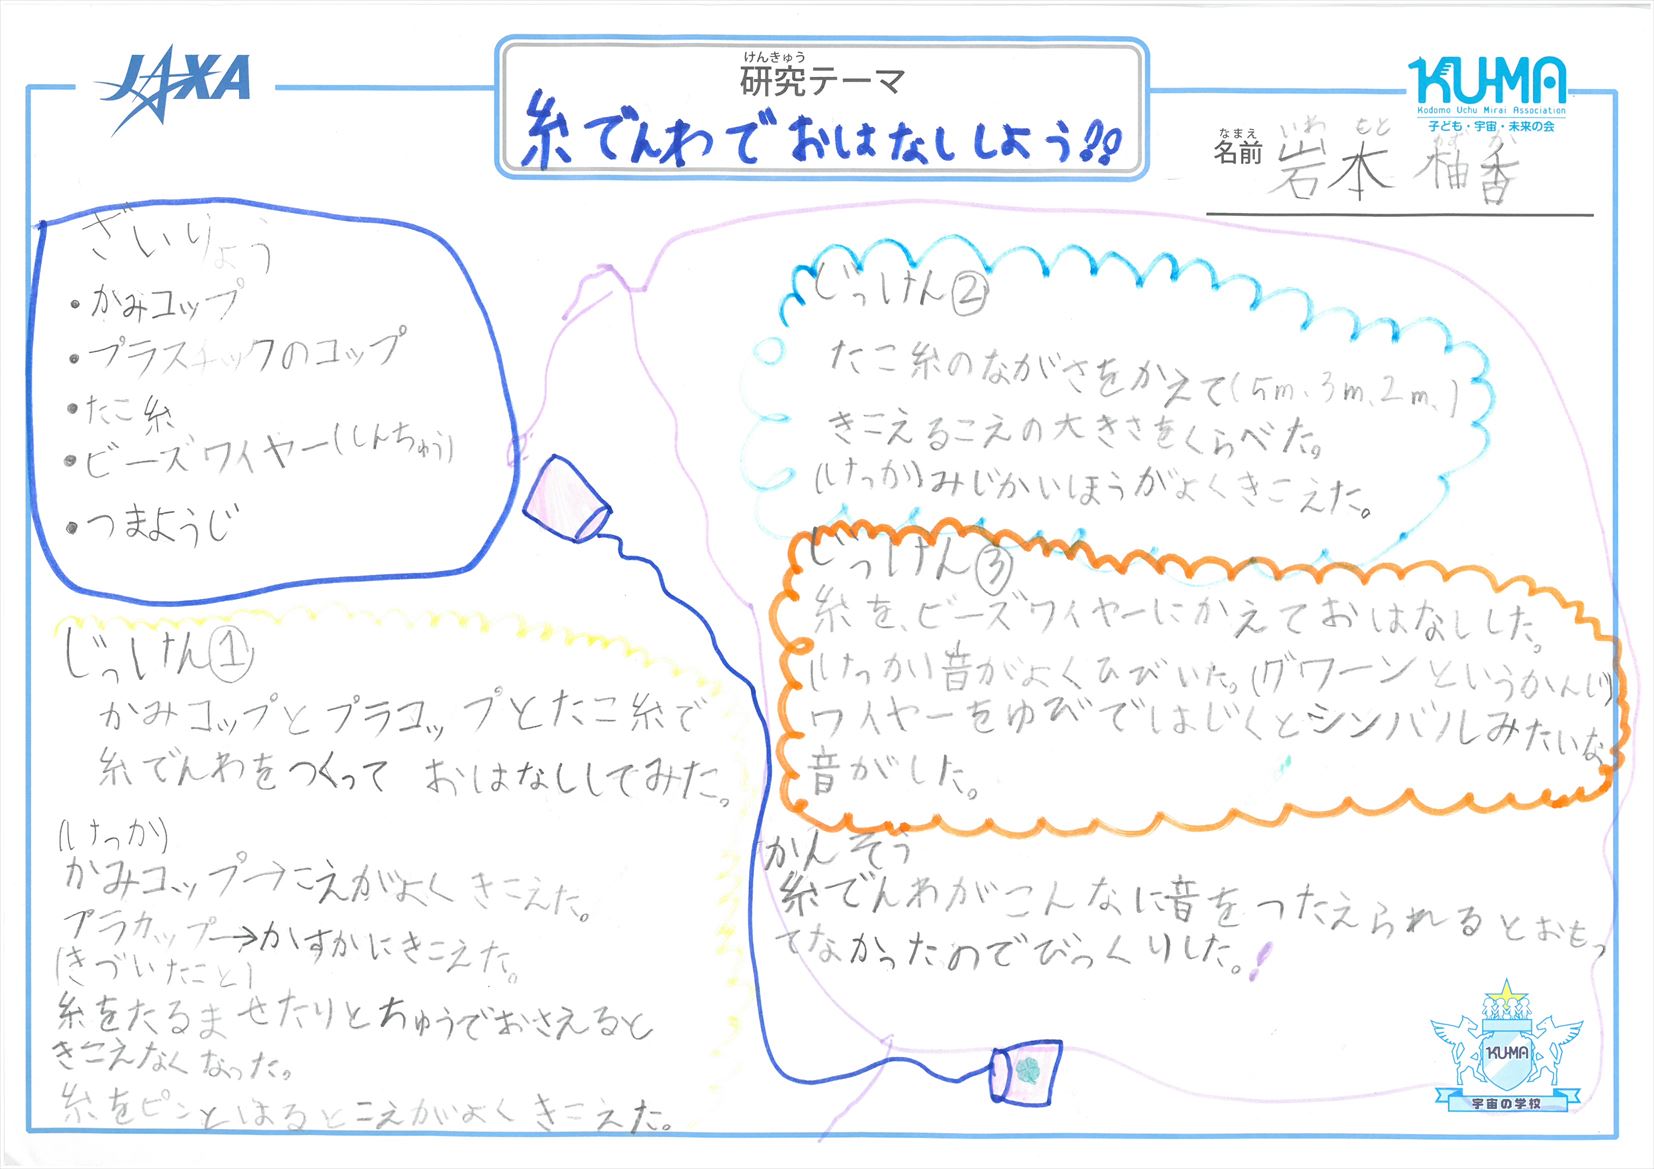 JAXA
けんきゅう
研究テーマ
糸でんわでおはなししよう??
KU-MA
Kodomo Uchu Mirai Association
子ども・宇宙・未来の会
なまえ
名前
いわ もと
岩本 柚香
ざいりょう
・かみコップ
・プラスチックのコップ
・たこ糸
・ビーズワイヤー(しんちゅう)
・つまようじ
じっけん①
かみコップとプラコップとたこ糸で
糸でんわをつくって おはなししてみた。
(けっか)
かみコップ→こえがよくきこえた。
プラカップ→かすかにきこえた。
(きづいたこと)
糸をたるませたりとちゅうでおさえると
きこえなくなった。
糸をピンとはるとこえがよくきこえた。
じっけん②
たこ糸のながさをかえて(5m、3m、2m、)
きこえるこえの大きさをくらべた。
(けっか)みじかいほうがよくきこえた。
じっけん③
糸を、ビーズワイヤーにかえておはなしした。
(けっか)音がよくひびいた。(グワーンというかんじ)
ワイヤーをゆびではじくとシンバルみたいな
音がした。
かんそう
糸でんわがこんなに音をつたえられるとおもっ
てなかったのでびっくりした。!
KU-MA
宇宙の学校